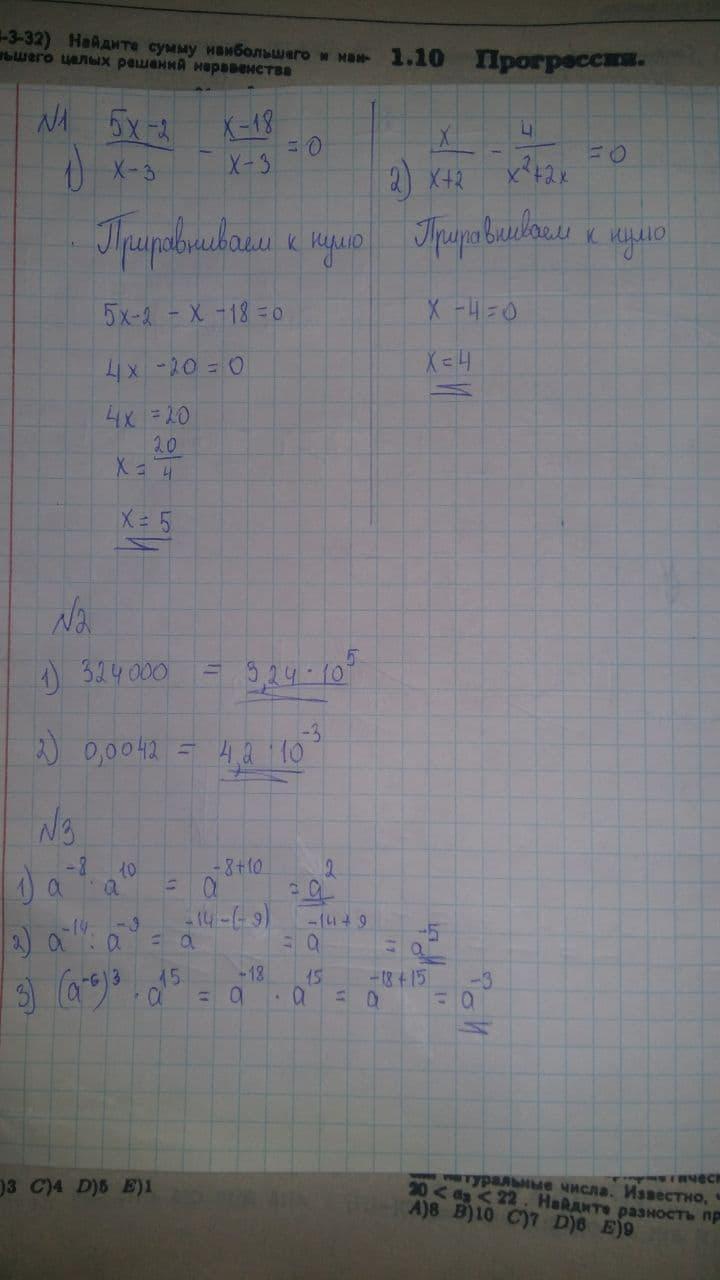 1-3-32) Найдите сумму наибольшего и наи-
ньшего целых решений неравенства
1.10 Прогрессии.
N1
1) (5x-2)/(x-3) - (x-18)/(x-3) = 0
Приравниваем к нулю
5x-2 - x -18 = 0
4x -20 = 0
4x = 20
x = 20/4
x = 5
2) x/(x+2) - 4/(x²+2x) = 0
Приравниваем к нулю
x -4 = 0
x = 4
N2
1) 324000 = 3,24 · 10⁵
2) 0,0042 = 4,2 · 10⁻³
N3
1) a⁻⁸ · a¹⁰ = a⁻⁸⁺¹⁰ = a²
2) a⁻¹⁴ : a⁻⁹ = a⁻¹⁴⁻⁽⁻⁹⁾ = a⁻¹⁴⁺⁹ = a⁻⁵
3) (a⁻⁶)³ · a¹⁵ = a⁻¹⁸ · a¹⁵ = a⁻¹⁸⁺¹⁵ = a⁻³
)3 C)4 D)5 E)1
натуральные числа. Известно,
20 < a₃ < 22. Найдите разность пр
A)8 B)10 C)7 D)6 E)9